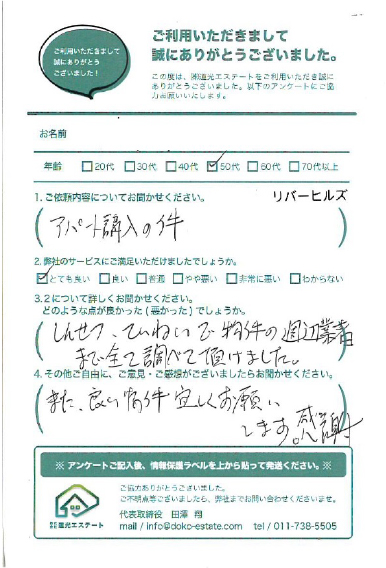 ご利用いただきまして
誠にありがとう
ございました！
ご利用いただきまして
誠にありがとうございました。
この度は、㈱道光エステートをご利用いただき誠に
ありがとうございました。以下のアンケートにご協
力お願いいたします。
お名前
年齢 □20代 □30代 □40代 ☑50代 □60代 □70代以上
1.ご依頼内容についてお聞かせください。 リバーヒルズ
アパート購入の件
2.弊社のサービスにご満足いただけましたでしょうか。
☑とても良い □良い □普通 □やや悪い □非常に悪い □わからない
3.2について詳しくお聞かせください。
どのような点が良かった(悪かった)でしょうか。
しんせつ、ていねいで物件の周辺業者
まで全て調べて頂けました。
4.その他ご自由に、ご意見・ご感想がございましたらお聞かせください。
また、良い物件宜しくお願い
します。感謝
※ アンケートご記入後、情報保護ラベルを上から貼って発送ください。※
ご協力ありがとうございました。
ご不明点等ございましたら、弊社までお問い合わせくださいませ。
代表取締役 田澤 翔
道光エステート
mail / info@doko-estate.com tel / 011-738-5505